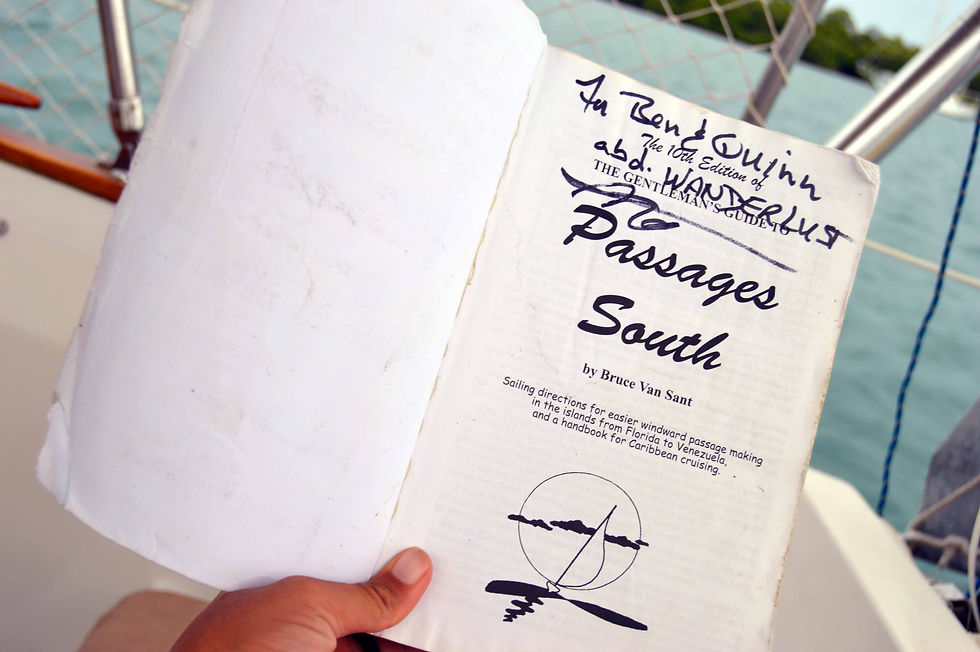 For Ben & Quinn
The 10th Edition of
abd. WANDERLUST
THE GENTLEMAN'S GUIDE TO
Passages
South
by Bruce Van Sant
Sailing directions for easier windward passage making
in the islands from Florida to Venezuela,
and a handbook for Caribbean cruising.